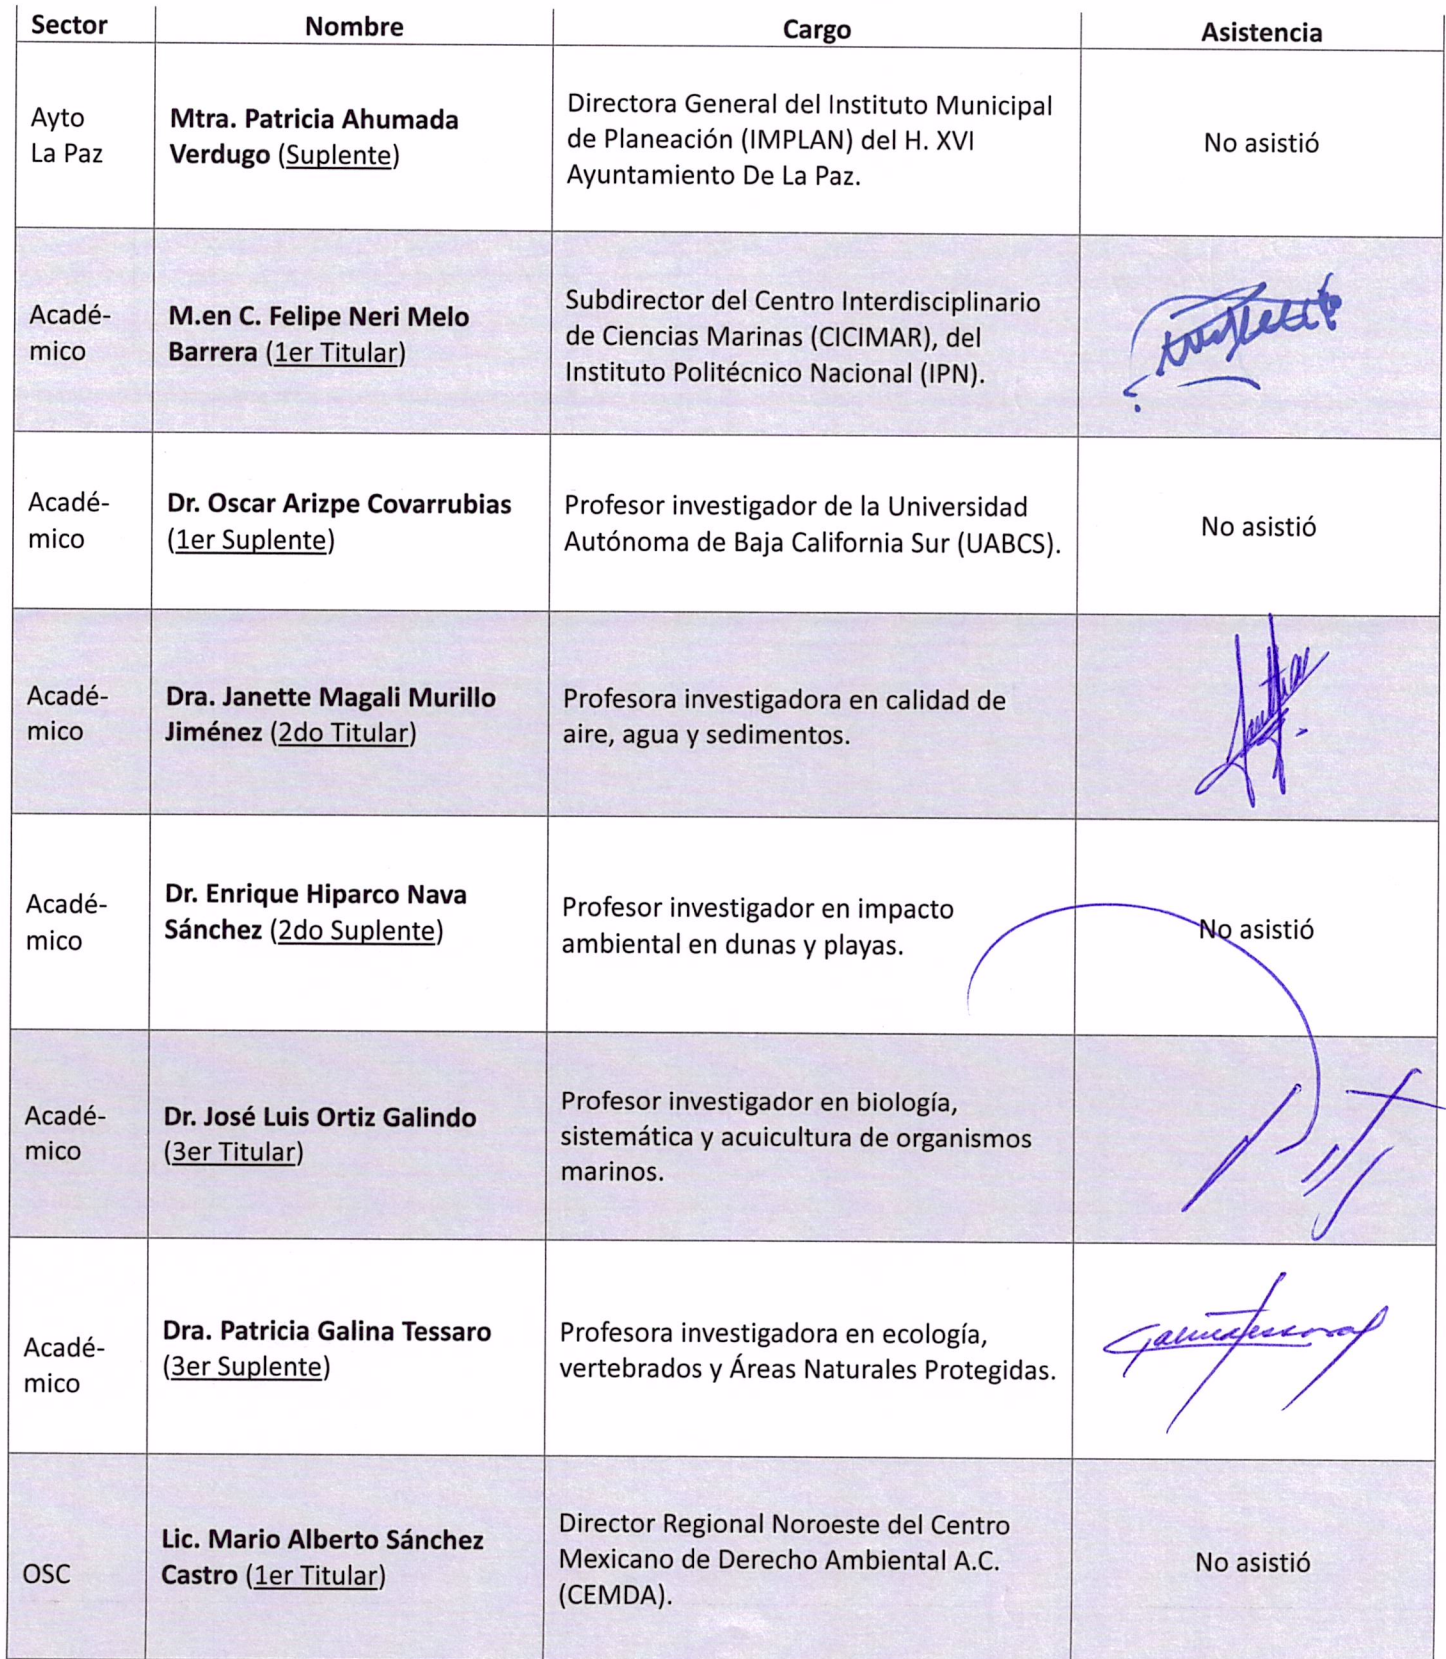 Sector Nombre Cargo Asistencia
Ayto
La Paz
Mtra. Patricia Ahumada
Verdugo (Suplente)
Directora General del Instituto Municipal
de Planeación (IMPLAN) del H. XVI
Ayuntamiento De La Paz.
No asistió
Acadé-
mico
M.en C. Felipe Neri Melo
Barrera (1er Titular)
Subdirector del Centro Interdisciplinario
de Ciencias Marinas (CICIMAR), del
Instituto Politécnico Nacional (IPN).
Acadé-
mico
Dr. Oscar Arizpe Covarrubias
(1er Suplente)
Profesor investigador de la Universidad
Autónoma de Baja California Sur (UABCS).
No asistió
Acadé-
mico
Dra. Janette Magali Murillo
Jiménez (2do Titular)
Profesora investigadora en calidad de
aire, agua y sedimentos.
Acadé-
mico
Dr. Enrique Hiparco Nava
Sánchez (2do Suplente)
Profesor investigador en impacto
ambiental en dunas y playas.
No asistió
Acadé-
mico
Dr. José Luis Ortiz Galindo
(3er Titular)
Profesor investigador en biología,
sistemática y acuicultura de organismos
marinos.
Acadé-
mico
Dra. Patricia Galina Tessaro
(3er Suplente)
Profesora investigadora en ecología,
vertebrados y Áreas Naturales Protegidas.
OSC
Lic. Mario Alberto Sánchez
Castro (1er Titular)
Director Regional Noroeste del Centro
Mexicano de Derecho Ambiental A.C.
(CEMDA).
No asistió